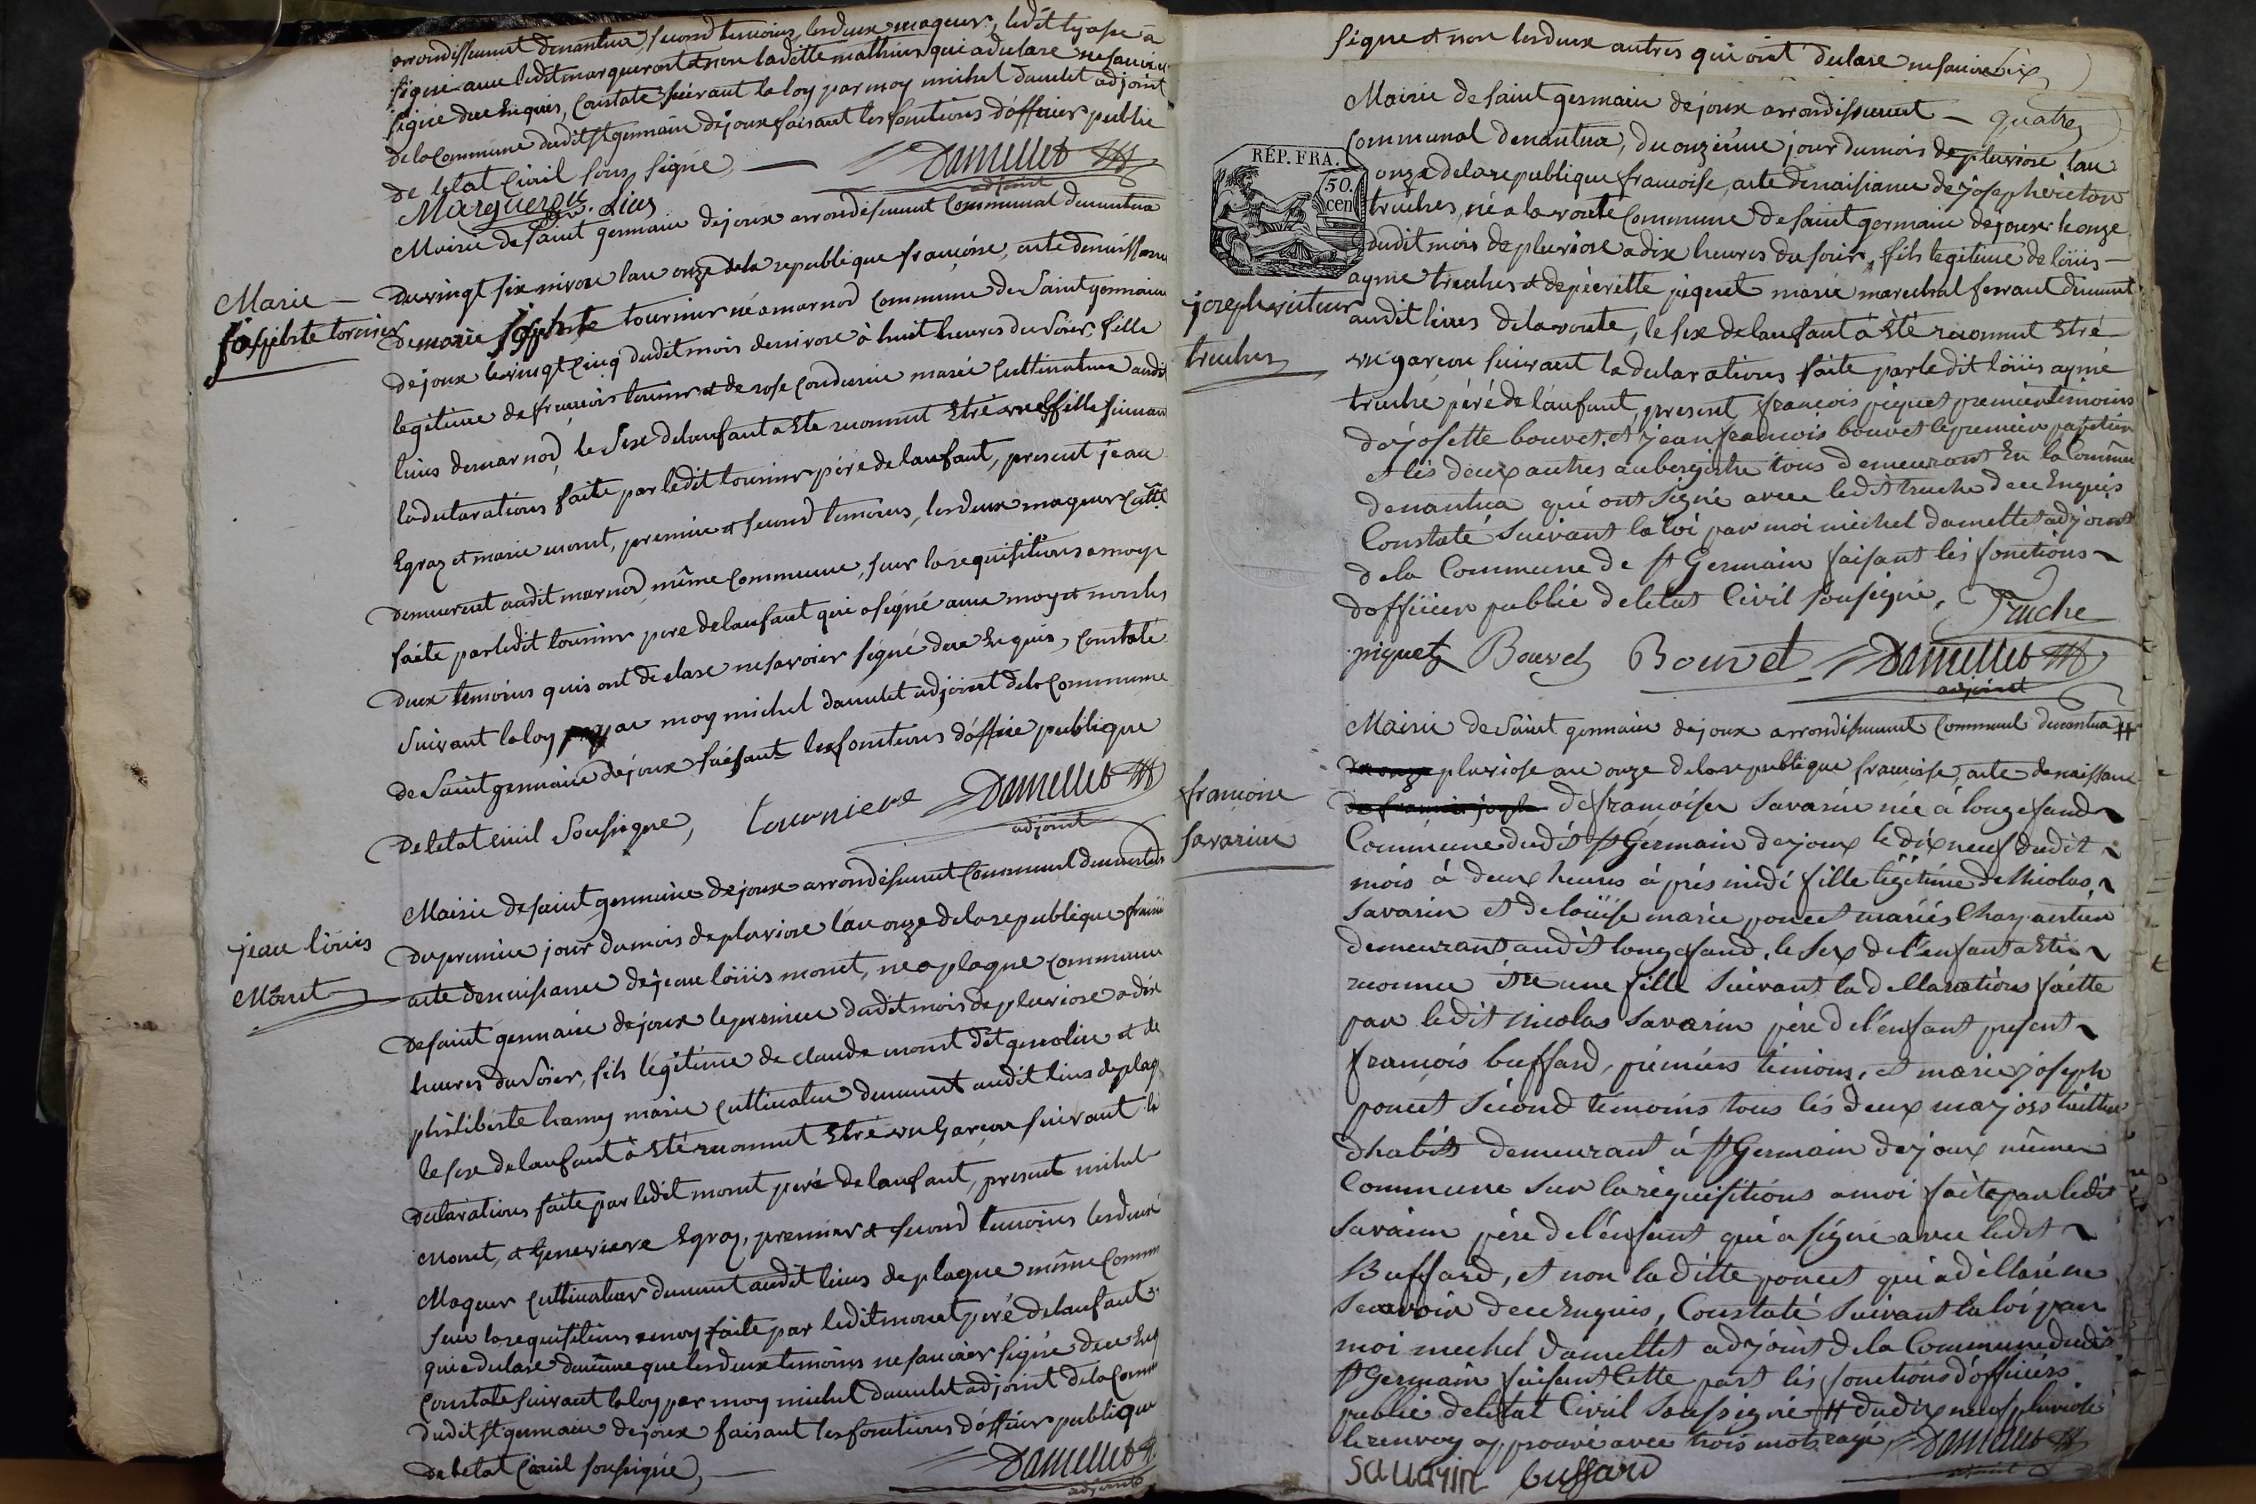 arrondissement denantua, second temoins, les deux mageur, ledit lyasse à
signé avec ledit marqueront et non laditte mathieu qui a declare ne savoir
signé dece enquis, Constaté suivant la loy par moy michel damlet adjoint
de la Commune dudit st germain dejoux faisant les fonctions d'officier public
de letat Civil sous signé, Damellet
adjoint
Margueron
Mairie de saint germain dejoux arrondisement Communal denantua
Du vingt six nivose lan onze de la republique françoise, acte denaissance
Marie
josephte tornier
de marie josephte tournier né a marnod Commune de Saint germain
dejoux le vingt cinq dudit mois de nivose à huit heures du Soier, fille
legitime de françois tournier et de rose condurier marié Cultivateur audit
lieus demarnod, le Sexe delanfant a Eté reconnut Etre une fille suivant
la declarations faite par ledit tournier pére de lanfant, present jean
Egraz et marie monet, premier et second temoins, les deux mageur Cultr
demeurent audit marnod, même Commune, sur la requisitions a moy
faite par ledit tournier pere de lanfant qui a signé avec moy et non les
deux temoins quis ont declaré ne savoier signé dece Enquis, Constaté
Suivant la loy par moy michel damelet adjoint de la Commune
de Saint germain dejoux faisant les fonctions d'office publique
de letat civil Sousigne, tournier Damellet
adjoint
Mairie de saint germain dejoux arrondisement Communal denantua
Du premier jour du mois de pluviose l'an onze de la republique
jean loüis
Monet
acte denaissance de jean loüis monet, ne a plagne Commune
de saint germain dejoux le premier dudit mois de pluviose a dix
heures du Soier, fils légitime de claude monet dit gerolin et de
philiberte hamy marié Cultivateur demeurent audit lieus de plagne
le sexe de lanfant a Eté reconnut Etre un garçon suivant la
declarations faite par ledit monet peré de lanfant, present michel
Monet, et Genevieve Egraz, premier et second temoins les deux
Mageur Cultivateur demeurent audit lieus de plagne même Comm
sur la requisitions a moy faite par ledit monet peré de lanfant
qui a declaré de même que les deux temoins ne savoier signé dece Enq
Constaté suivant la loy par moy michel damelet adjoint de la Comm
dudit st germain dejoux faisant les fonctions d'officier publique
de letat Civil sousignée, Damellet
adjoint
signé et non les deux autres qui ont declaré ne savoir
Mairie de saint germain dejoux arrondissement — quatre
Communal denantua, du onziéme jour du mois de pluviose lan
RÉP. FRA.
50.
cen
onze de la republique françoise, acte denaissance de joseph victor
truches, né a la voute Commune de saint germain dejoux le onze
dudit mois de pluviose a dix heures du soir, fils legitime de loüis
aymé truches et de pierrette piquet marié marechal ferrant demeurent
joseph victeur
truches
audit lieus de la voute, le sex de lanfant à Eté reconnut Etré
un garçon suivant la declarations faite par ledit loüis aymé
truche péré de lanfant, present françois piquet premier temoins
de josette bouvet, et jean francois bouvet le premier
et les deux autres aubergiste tous demeurant En la Comune
denantua qui ont signé avec ledit truche dece Enquis
Constaté suivant la loi par moi michel damellet adjoint
de la Commune de St Germain faisant les fonctions
dofficier public de letat Civil sousigné, Truche
piquet Bouvet Bouvet Damellet
adjoint
Mairie de Saint germain dejoux arrondisement Communl denantua #
du onze pluviose an onze de la republique française, acte denaissance
françoise
savarin
de françoise Savarin née à longefand
Commune dudit St Germain dejoux le dix neuf dudit
mois à deux heures après midi fille légitime de Nicolas
Savarin et de loüise marie poncet mariés Charpentier
demeurant audit longefand, le Sex de l'enfant a Eté
reconnu étre une fille Suivant la dellarations faitte
par ledit nicolas Savarin pére de l'enfant present
françois buffard, prémiers témoins, et marie joseph
poncet Sécond témoins tous les deux majors tailleur
dhabits demeurant à St Germain dejoux même
Commune Sur la réquisitions a moi faite par ledit
Savarin pére de l'énfant qui a signé avec ledit
Buffard, et non la ditte poncet qui a déllaré ne
Scavoir dece Enquis, Constaté Suivant la loi par
moi michel Damellet adjoint de la Commune dudit
St Germain faisant Cette part lés fonctions d'officiérs
public de letat Civil Soussigné # du dix neuf pluviose
le renvoy approuvé avec trois mots rayé, Damellet
adjoint
savarin buffard